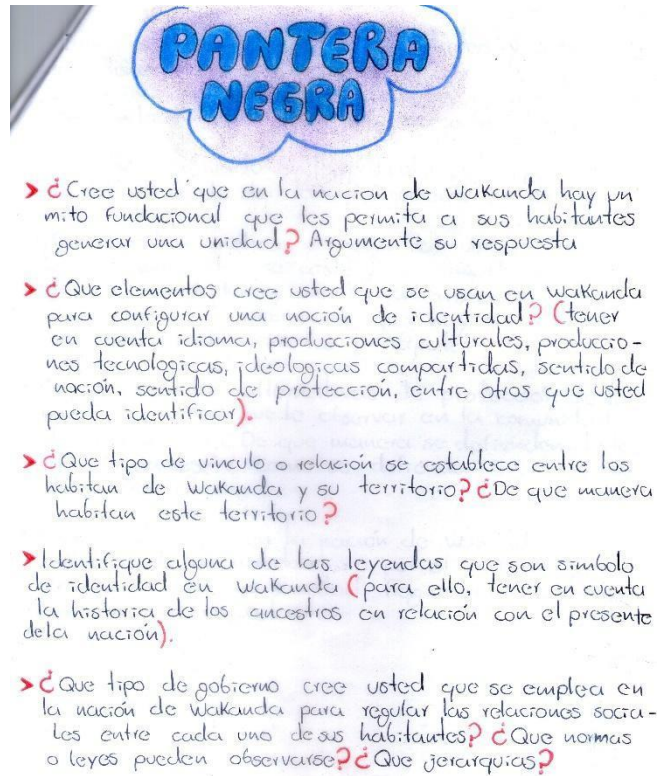 PANTERA
NEGRA
> ¿Cree usted que en la nacion de wakanda hay un
mito fundacional que les permita a sus habitantes
generar una unidad? Argumente su respuesta
> ¿Que elementos cree usted que se usan en wakanda
para configurar una noción de identidad? (tener
en cuenta idioma, producciones culturales, produccio-
nes tecnologicas, ideologicas compartidas, sentido de
nación, sentido de protección, entre otros que usted
pueda identificar).
> ¿Que tipo de vinculo o relación se establece entre los
habitan de Wakanda y su territorio? ¿De que manera
habitan este territorio?
> Identifique alguna de las leyendas que son simbolo
de identidad en Wakanda (para ello, tener en cuenta
la historia de los ancestros en relación con el presente
dela nación).
> ¿Que tipo de gobierno cree usted que se emplea en
la nación de Wakanda para regular las relaciones socia-
les entre cada uno de sus habitantes? ¿Que normas
o leyes pueden observarse? ¿Que jerarquias?